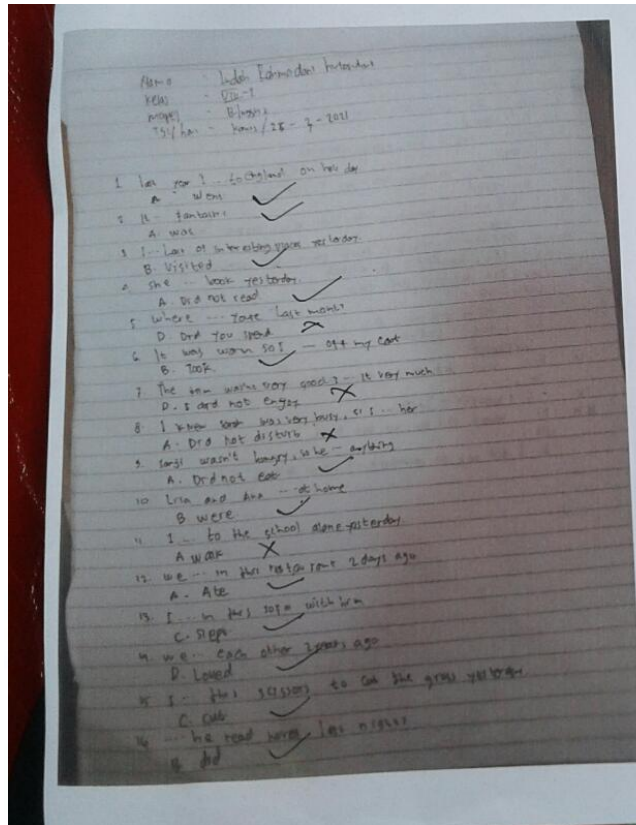 Nama : Indah Rahmadani
Kelas : VIII-1
mapel : B.Inggris
Tgl/hari - kamis/25 - 3 - 2021
1 last year I ... to England on holiday
A. went
2 It ... fantastic
A. was
3 I ... Lots of interesting places yesterday.
B. Visited
4 She ... book yesterday.
A. Did not read
5 Where ... Last month
D. Did you spend
6 It was warm so I ... off my coat
B. Took
7 The was'nt very good I ... it very much
D. I did not enjoy
8 I knew was very busy, so I ... her
A. Did not disturb
9. wasn't hungry, so he ... anything
A. Did not eat
10 Lisa and Ana ... at home
B were
11 I ... to the school alone yesterday
A walk
12 we ... in this restaurant 2 days ago
A. Ate
13. I ... in this sofa with him
C. Slept
we ... each other 2 years ago
D. Loved
15 I ... this scissors to cut the grass yesterday
C.
16 ... he read novel last night
did